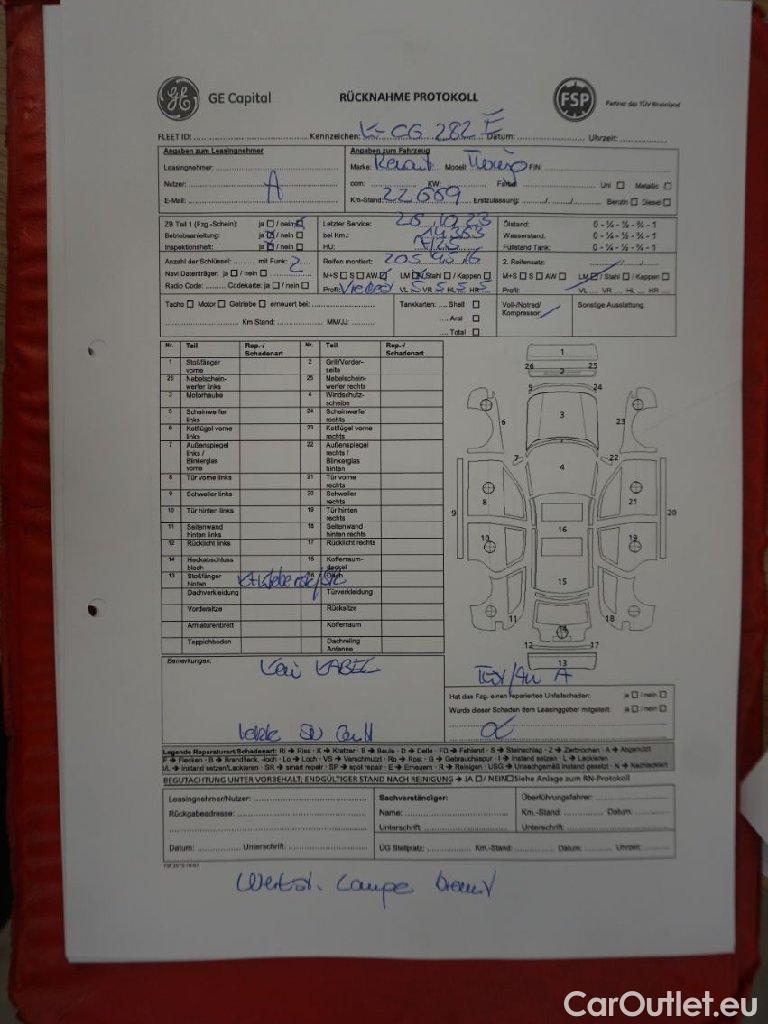 GE GE Capital RÜCKNAHME PROTOKOLL FSP Partner des TÜV Rheinland
FLEET ID: Kennzeichen: K-CG 282 E Datum: Uhrzeit:
Angaben zum Leasingnehmer Angaben zum Fahrzeug
Leasingnehmer: Marke: Modell: FIN:
Nutzer: A com: KW: Farbe: Uni Metallic
E-Mail: Km-Stand: 22 689 Erstzulassung: Benzin Diesel
ZB Teil 1 (Fzg.-Schein): ja / nein Letzter Service: 26.10.23 Ölstand: 0 - ¼ - ½ - ¾ - 1
Betriebsanleitung: ja / nein bei Km.: Wasserstand: 0 - ¼ - ½ - ¾ - 1
Inspektionsheft: ja / nein HU: Füllstand Tank: 0 - ¼ - ½ - ¾ - 1
Anzahl der Schlüssel: mit Funk: 2 Reifen montiert: 2. Reifensatz:
Navi Datenträger: ja / nein M+S S AW LM / Stahl / Kappen M+S S AW LM / Stahl / Kappen
Radio Code: Cardekarte: ja / nein Profil: VL 5 VR 5 HL 5 HR 5 Profil: VL VR HL HR
Tacho Motor Getriebe erneuert bei: Tankkarten: Shell Voll-/Notrad/ Sonstige Ausstattung
Km Stand: MM/JJ: Aral Kompressor:
Total
Nr. Teil Rep.-/ Schadenart Nr. Teil Rep.-/ Schadenart
1 Stoßfänger vorne 2 Grill/Vorderseite
25 Nebelscheinwerfer links 26 Nebelscheinwerfer rechts
3 Motorhaube 4 Windschutzscheibe
5 Scheinwerfer links 24 Scheinwerfer rechts
6 Kotflügel vorne links 23 Kotflügel vorne rechts
7 Außenspiegel links / Blinkerglas vorne 22 Außenspiegel rechts / Blinkerglas hinten
8 Tür vorne links 21 Tür vorne rechts
9 Schweller links 20 Schweller rechts
10 Tür hinten links 19 Tür hinten rechts
11 Seitenwand hinten links 18 Seitenwand hinten rechts
12 Rücklicht links 17 Rücklicht rechts
14 Heckabschlussblech 15 Kofferraumdeckel
13 Stoßfänger hinten 16 Dach
Dachverkleidung Türverkleidung
Vordersitze Rücksitze
Armaturenbrett Kofferraum
Teppichboden Dachreling Antenne
1
26 2 25
5 24
6 3 23
7 22
4
8 21
9 20
16
10 19
15
11 18
14
12 17
13
Bemerkungen: Kein KABEL A
Hat das Fzg. einen reparierten Unfallschaden: ja / nein
Wurde dieser Schaden dem Leasinggeber mitgeteilt: ja / nein
Legende Reparaturart/Schadenart: Ri → Riss - K → Kratzer - B → Beule - D → Delle - FD → Fehlend - S → Steinschlag - Z → Zerbrochen - A → Abgenutzt
F → Flecken - B → Brandfleck, -loch - Lo → Loch - VS → Verschmutzt - Ro → Rost - G → Gebrauchsspur - I → Instand setzen - L → Lackieren
I/L → Instand setzen/Lackieren - SR → smart repair - SP → spot repair - E → Erneuern - R → Reinigen - USG → Unsachgemäß instand gesetzt - N → Nachlackiert
BEGUTACHTUNG UNTER VORBEHALT; ENDGÜLTIGER STAND NACH REINIGUNG → JA / NEIN Siehe Anlage zum RN-Protokoll
Leasingnehmer/Nutzer: Sachverständiger: Überführungsfahrer:
Rückgabeadresse: Name: Km.-Stand: Datum:
Unterschrift Unterschrift:
Datum: Unterschrift: ÜG Stellplatz: Km.-Stand: Datum: Uhrzeit:
Lampe brennt
CarOutlet.eu